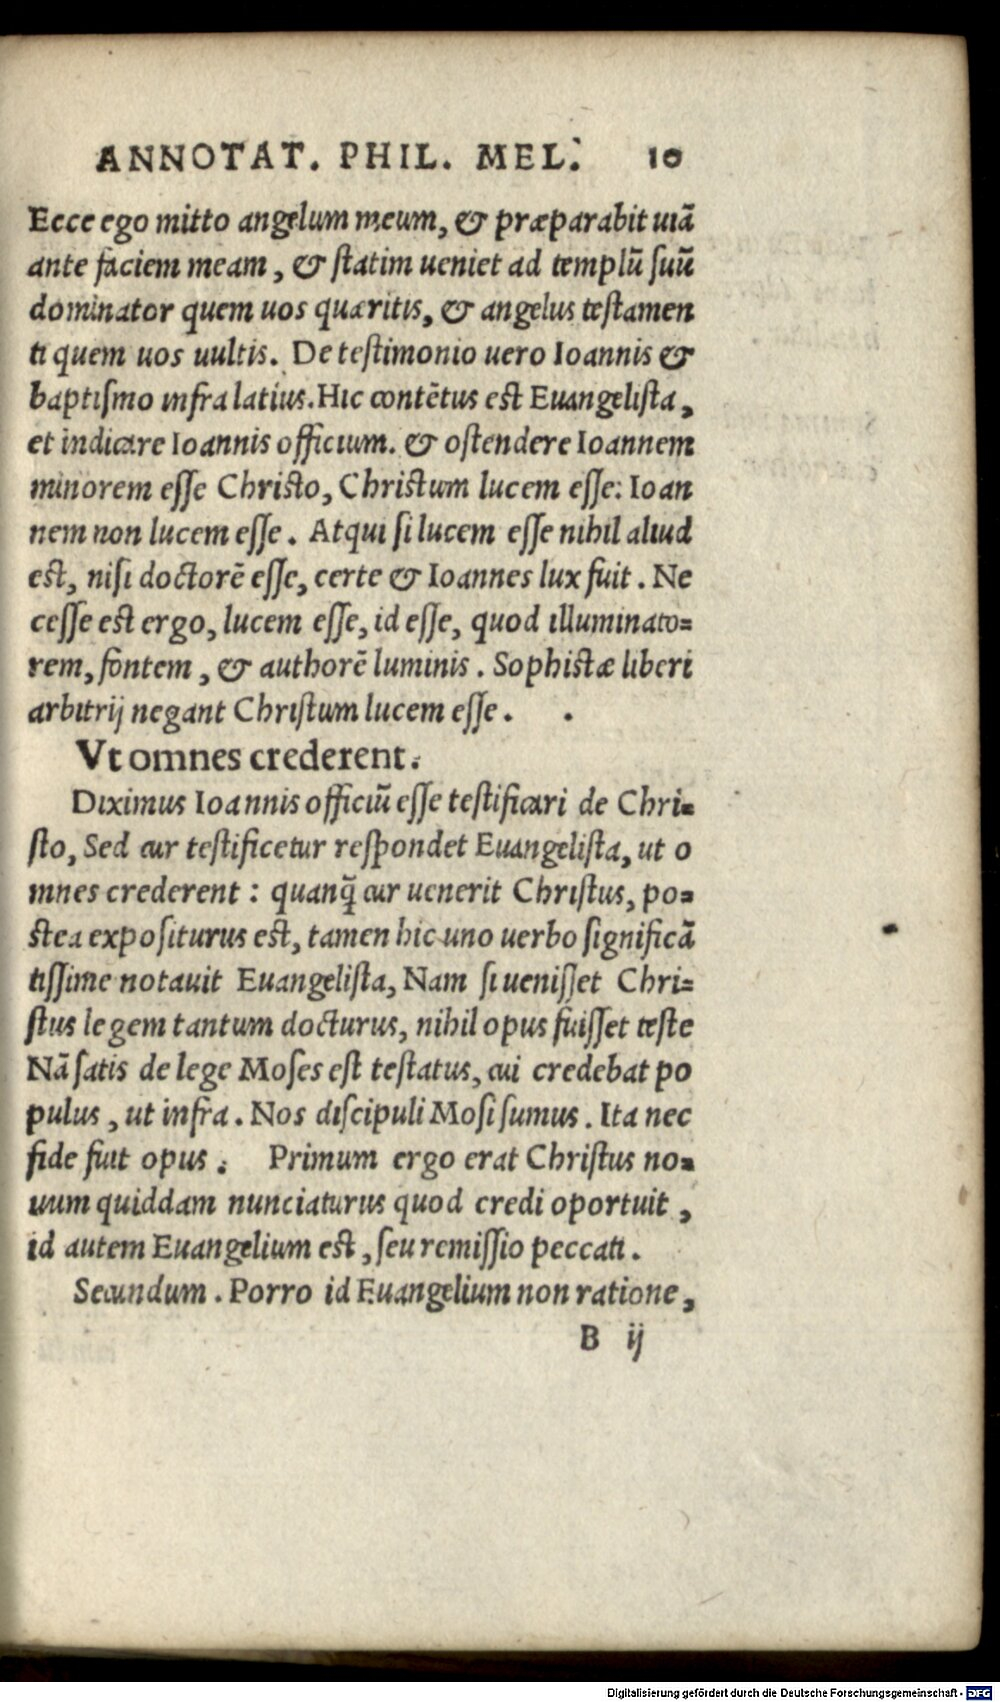 ANNOTAT. PHIL. MEL. 10
Ecce ego mitto angelum meum, & præparabit uiã
ante faciem meam, & ſtatim ueniet ad templũ ſuũ
dominator quem uos quæritis, & angelus teſtamen
ti quem uos uultis. De teſtimonio uero Ioannis &
baptiſmo infra latius. Hic contẽtus eſt Euangeliſta,
et indicare Ioannis officium. & oſtendere Ioannem
minorem eſſe Chriſto, Chriſtum lucem eſſe: Ioan
nem non lucem eſſe. Atqui ſi lucem eſſe nihil aliud
eſt, niſi doctorẽ eſſe, certe & Ioannes lux fuit. Ne
ceſſe eſt ergo, lucem eſſe, id eſſe, quod illuminato=
rem, fontem, & authorẽ luminis. Sophiſtæ liberi
arbitrij negant Chriſtum lucem eſſe.
Vt omnes crederent.
Diximus Ioannis officiũ eſſe teſtificari de Chri=
ſto, Sed cur teſtificetur reſpondet Euangeliſta, ut o
mnes crederent: quanq̃ cur uenerit Chriſtus, po=
ſtea expoſiturus eſt, tamen hic uno uerbo ſignificã
tiſſime notauit Euangeliſta, Nam ſi ueniſſet Chri=
ſtus legem tantum docturus, nihil opus fuiſſet teſte
Nã ſatis de lege Moſes eſt teſtatus, cui credebat po
pulus, ut infra. Nos diſcipuli Moſi ſumus. Ita nec
fide fuit opus. Primum ergo erat Chriſtus no=
uum quiddam nunciaturus quod credi oportuit,
id autem Euangelium eſt, ſeu remiſſio peccati.
Secundum. Porro id Euangelium non ratione,
B ij
Digitalisierung gefördert durch die Deutsche Forschungsgemeinschaft - DFG